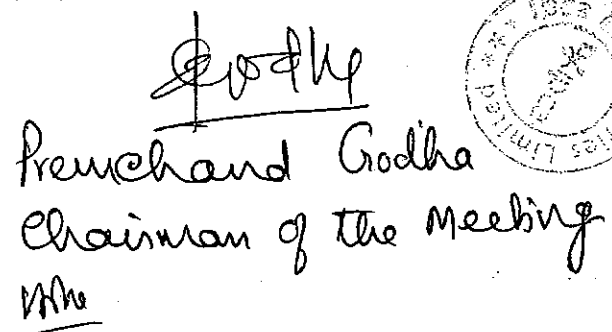 Godha
Premchand Godha
Chairman of the Meeting
ies Limited